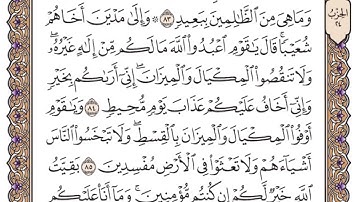 الحزب
٢٤
وَمَا هِيَ مِنَ ٱلظَّٰلِمِينَ بِبَعِيدٖ ٨٣ ۞ وَإِلَىٰ مَدۡيَنَ أَخَاهُمۡ
شُعَيۡبٗاۚ قَالَ يَٰقَوۡمِ ٱعۡبُدُواْ ٱللَّهَ مَا لَكُم مِّنۡ إِلَٰهٍ غَيۡرُهُۥۖ
وَلَا تَنقُصُواْ ٱلۡمِكۡيَالَ وَٱلۡمِيزَانَۖ إِنِّيٓ أَرَىٰكُم بِخَيۡرٖ
وَإِنِّيٓ أَخَافُ عَلَيۡكُمۡ عَذَابَ يَوۡمٖ مُّحِيطٖ ٨٤ وَيَٰقَوۡمِ
أَوۡفُواْ ٱلۡمِكۡيَالَ وَٱلۡمِيزَانَ بِٱلۡقِسۡطِۖ وَلَا تَبۡخَسُواْ ٱلنَّاسَ
أَشۡيَآءَهُمۡ وَلَا تَعۡثَوۡاْ فِي ٱلۡأَرۡضِ مُفۡسِدِينَ ٨٥ بَقِيَّتُ
ٱللَّهِ خَيۡرٞ لَّكُمۡ إِن كُنتُم مُّؤۡمِنِينَۚ وَمَآ أَنَا۠ عَلَيۡكُم